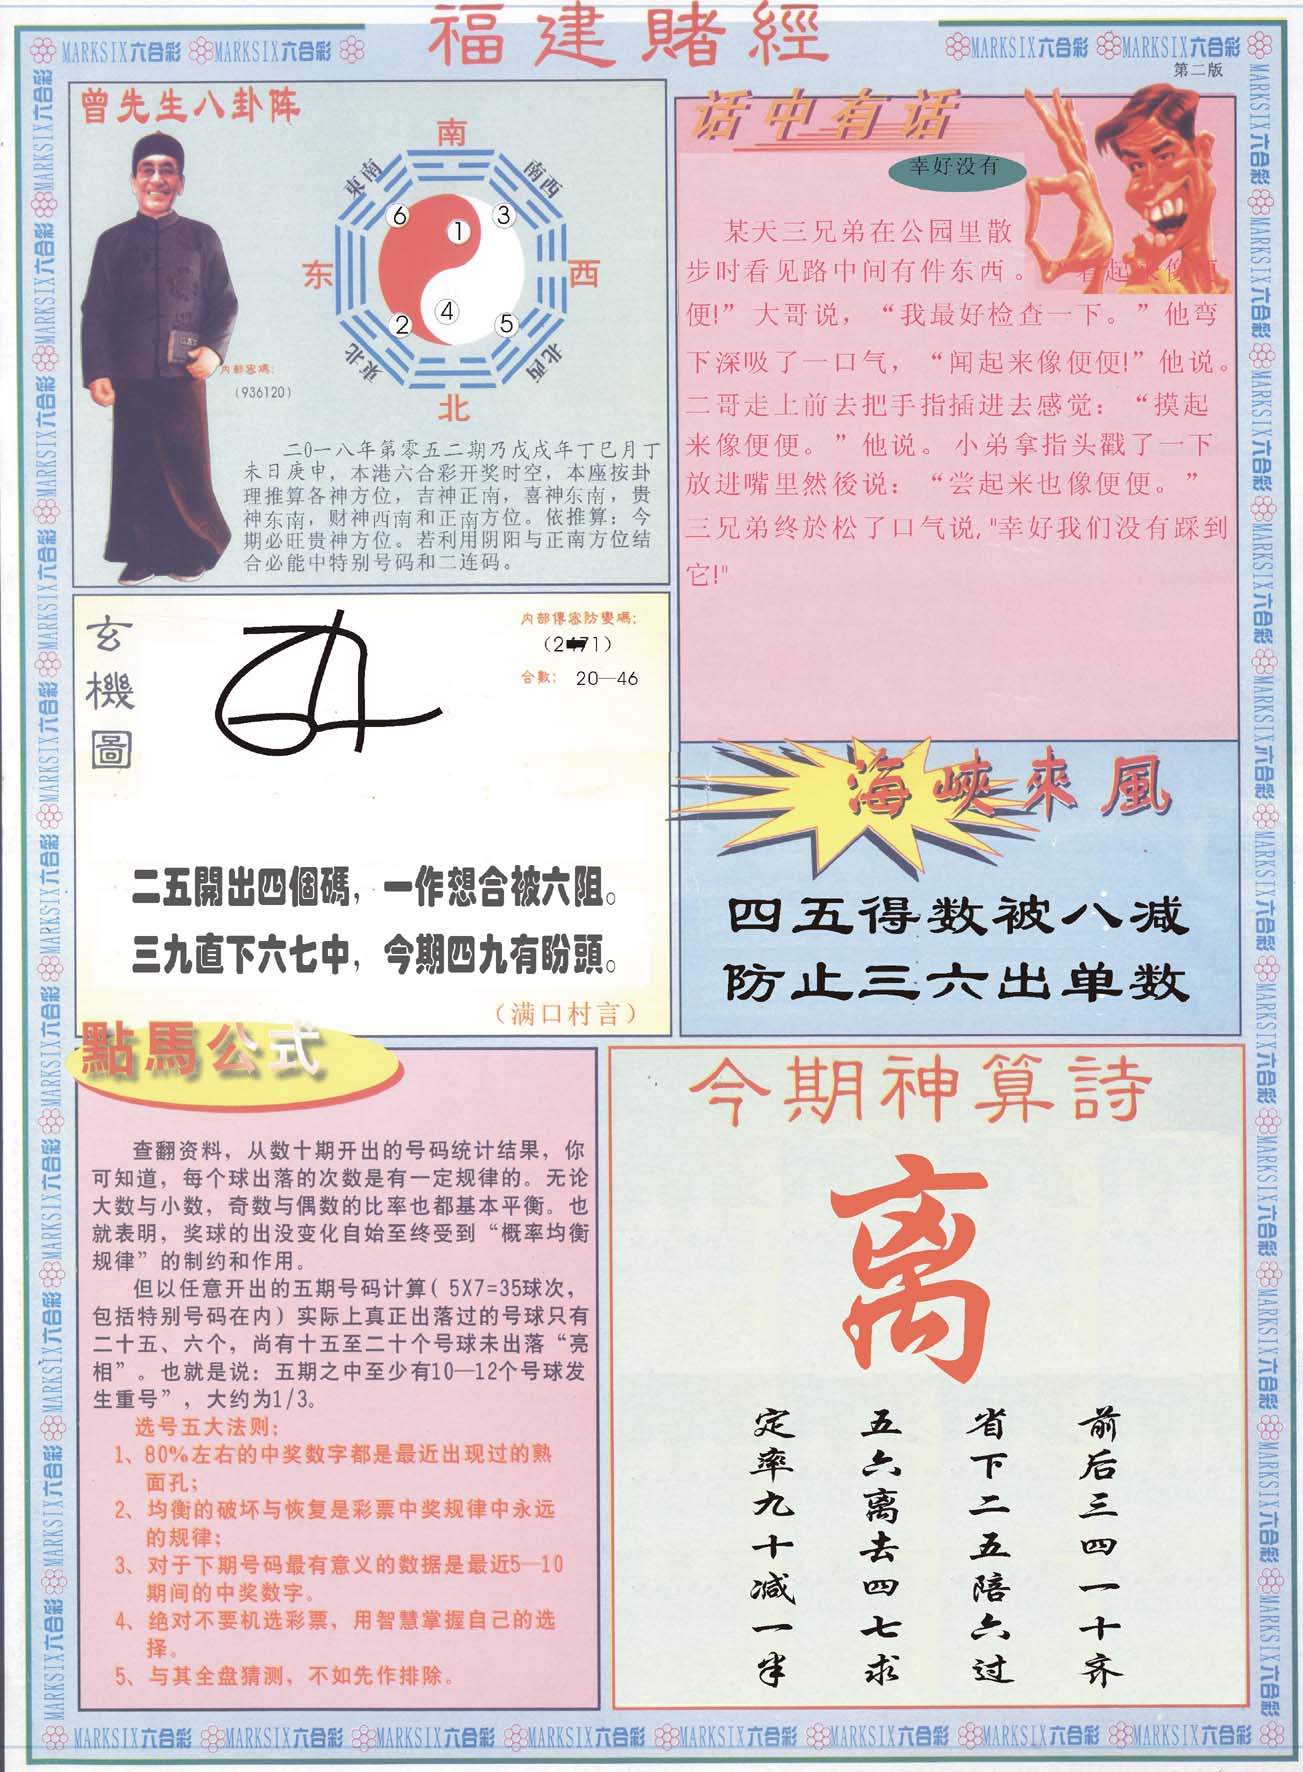 福建賭經
MARKSIX六合彩 MARKSIX六合彩
MARKSIX六合彩 MARKSIX六合彩
第二版
曾先生八卦阵
南
東南
南西
6
1
3
东
西
2
4
5
東北
北西
北
内部密碼:
(936120)
二0一八年第零五二期乃戊戌年丁巳月丁
未日庚申，本港六合彩开奖时空，本座按卦
理推算各神方位，吉神正南，喜神东南，贵
神东南，财神西南和正南方位。依推算：今
期必旺贵神方位。若利用阴阳与正南方位结
合必能中特别号码和二连码。
话中有话
幸好没有
某天三兄弟在公园里散
步时看见路中间有件东西。“看起来像便
便!”大哥说，“我最好检查一下。”他弯
下深吸了一口气，“闻起来像便便!”他说。
二哥走上前去把手指插进去感觉：“摸起
来像便便。”他说。小弟拿指头戳了一下
放进嘴里然後说：“尝起来也像便便。”
三兄弟终於松了口气说,"幸好我们没有踩到
它!"
玄機圖
内部傳密防變碼:
(2 71)
合數: 20—46
二五開出四個碼，一作想合被六阻。
三九直下六七中，今期四九有盼頭。
（满口村言）
海峽來風
四五得数被八减
防止三六出单数
點馬公式
查翻资料，从数十期开出的号码统计结果，你
可知道，每个球出落的次数是有一定规律的。无论
大数与小数，奇数与偶数的比率也都基本平衡。也
就表明，奖球的出没变化自始至终受到“概率均衡
规律”的制约和作用。
但以任意开出的五期号码计算( 5X7=35球次，
包括特别号码在内) 实际上真正出落过的号球只有
二十五、六个，尚有十五至二十个号球未出落“亮
相”。也就是说：五期之中至少有10—12个号球发
生重号”，大约为1/3。
选号五大法则：
1、80%左右的中奖数字都是最近出现过的熟
面孔；
2、均衡的破坏与恢复是彩票中奖规律中永远
的规律；
3、对于下期号码最有意义的数据是最近5—10
期间的中奖数字。
4、绝对不要机选彩票，用智慧掌握自己的选
择。
5、与其全盘猜测，不如先作排除。
今期神算詩
离
前后三四一十齐
省下二五陪六过
五六离去四七求
定率九十减一半
MARKSIX六合彩 MARKSIX六合彩 MARKSIX六合彩 MARKSIX六合彩 MARKSIX六合彩 MARKSIX六合彩 MARKSIX六合彩 MARKSIX六合彩